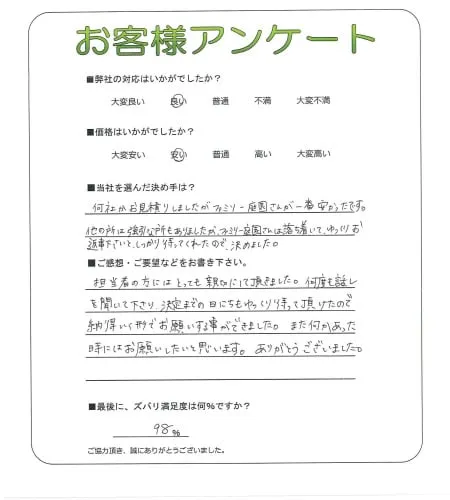 お客様アンケート
■弊社の対応はいかがでしたか?
大変良い 良い 普通 不満 大変不満
■価格はいかがでしたか?
大変安い 安い 普通 高い 大変高い
■当社を選んだ決め手は?
何社かお見積りしましたがファミリー庭園さんが一番安かったです。
他の所は強引な所もありましたが、ファミリー庭園さんは落ち着いて、ゆっくりお
返事下さいと、しっかり待ってくれたので、決めました。
■ご感想・ご要望などをお書き下さい。
担当者の方にはとっても親切にして頂きました。何度も話し
を聞いて下さり、決定までの日にちもゆっくり待って頂けたので
納得いく形でお願いする事ができました。また何かあった
時にはお願いしたいと思います。ありがとうございました。
■最後に、ズバリ満足度は何%ですか?
98%
ご協力頂き、誠にありがとうございました。